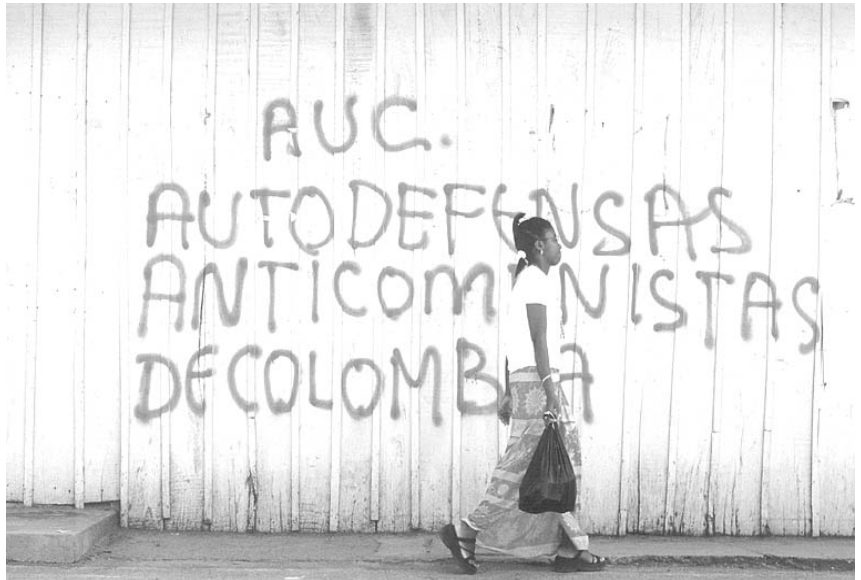 AUC.
AUTODEFENSAS
ANTICOMUNISTAS
DECOLOMBIA